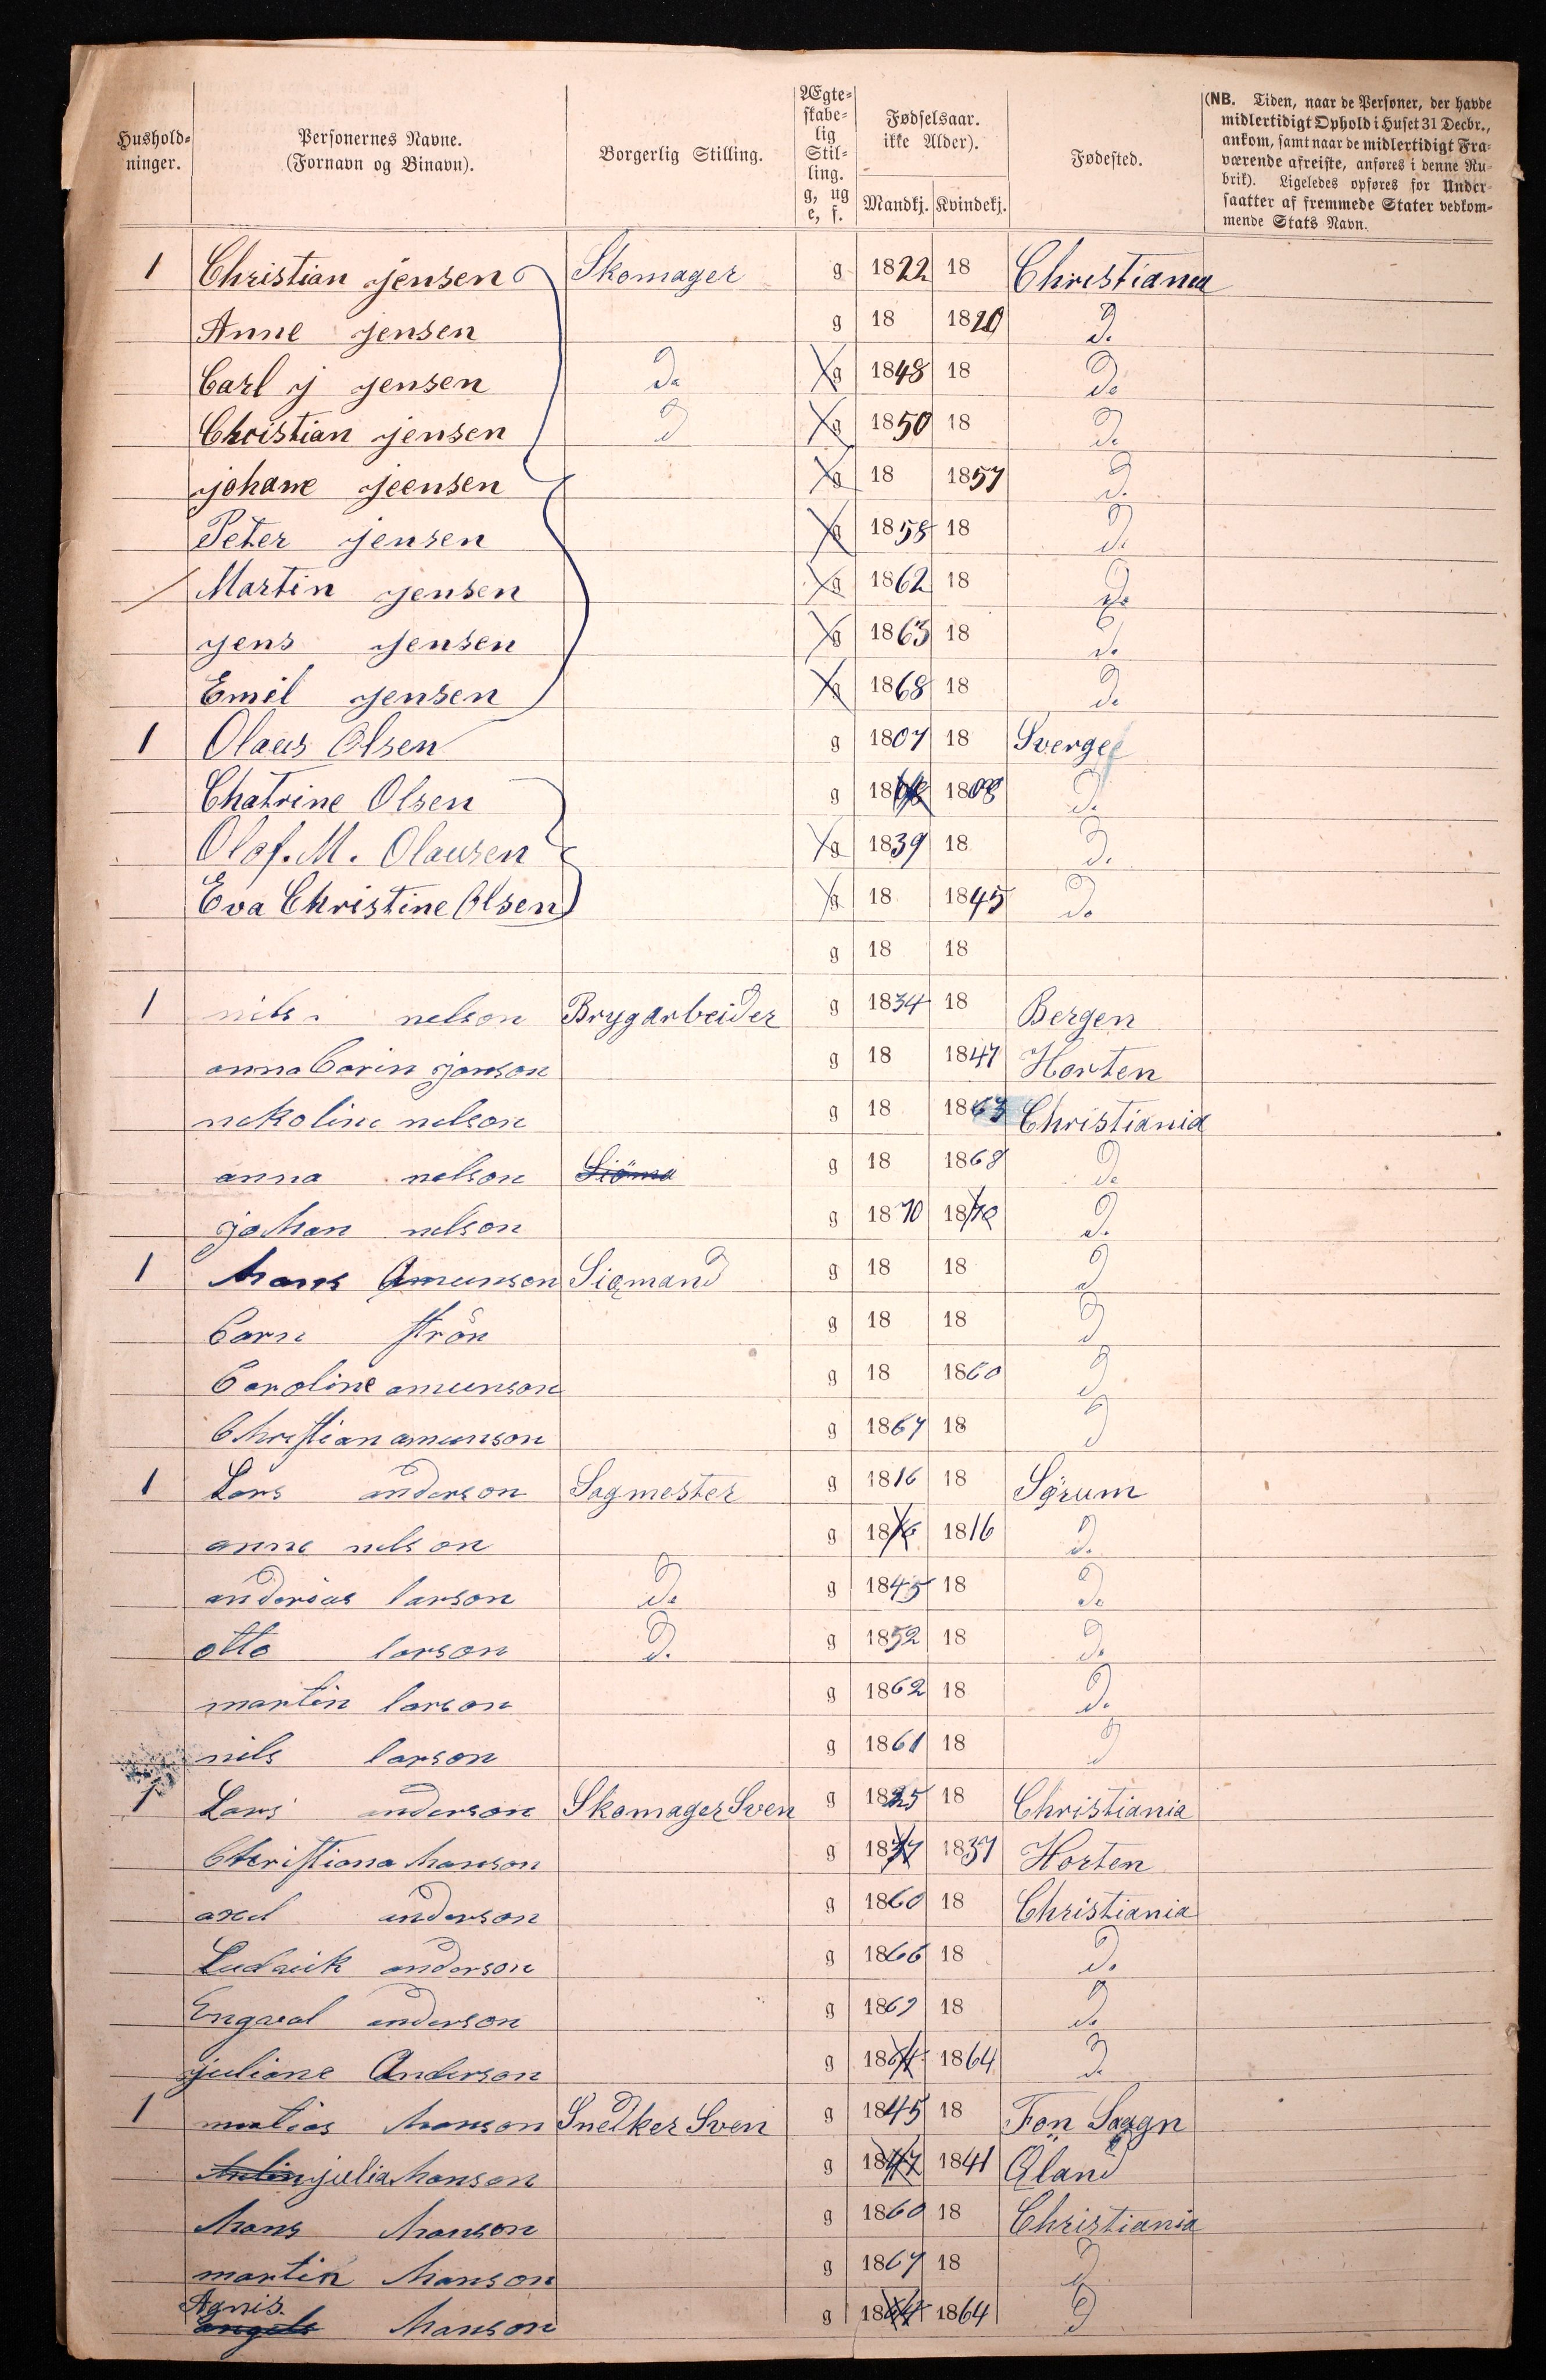 Hushold-
ninger.
Personernes Navne.
(Fornavn og Binavn).
Borgerlig Stilling.
Ægte-
skabe-
lig
Stil-
ling.
g, ug
e, f.
Fødselsaar.
ikke Alder).
Mandkj. Kvindekj.
Fødested.
(NB. Tiden, naar de Personer, der havde
midlertidigt Ophold i Huset 31 Decbr.,
ankom, samt naar de midlertidigt Fra-
værende afreiste, anføres i denne Ru-
brik). Ligeledes opføres for Under-
saatter af fremmede Stater vedkom-
mende Stats Navn.
1 Christian Jensen Skomager g 1822 18 Christiania
Anne Jensen g 18 1820 Do
Carl J Jensen Do g 1848 18 Do
Christian Jensen D g 1850 18 Do
Johane Jeensen g 18 1857 Do
Peter Jensen g 1858 18 Do
Martin Jensen g 1862 18 Do
Jens Jensen g 1863 18 Do
Emil Jensen g 1868 18 Do
1 Olaus Olsen g 1807 18 Sverge
Chatrine Olsen g 18 1808 Do
Olof. M. Olausen g 1839 18 Do
Eva Christine Olsen g 18 1845 Do
g 18 18
1 nils nelson Brygarbeider g 1834 18 Bergen
anna Carin Janson g 18 1847 Horten
nekoline nelson g 18 1863 Christiania
anna nelson g 18 1868 Do
johan nelson g 1870 1870 Do
1 Hans Amunson Siømand g 18 18 D
Carn Strön g 18 18 D
Caroline amunson g 18 1860 D
Christian amunson g 1867 18 D
1 Lars anderson Sagmester g 1816 18 Sørum
anne nelson g 1816 1816 Do
anderias larson Do g 1845 18 Do
otto larson Do g 1852 18 Do
martin larson g 1862 18 Do
nils larson g 1861 18 D
1 Lars anderson Skomager Sven g 1825 18 Christiania
Christiana hanson g 1837 1837 Horten
axel anderson g 1860 18 Christiania
Ludvik anderson g 1866 18 Do
Engval anderson g 1869 18 Do
juliane Anderson g 1864 1864 Do
1 matias hanson Snedker Sven g 1845 18 Fon Saagn
julia hanson g 1847 1841 Øland
hans hanson g 1860 18 Christiania
martin hanson g 1867 18 D
Agnis
hanson g 1864 1864 D